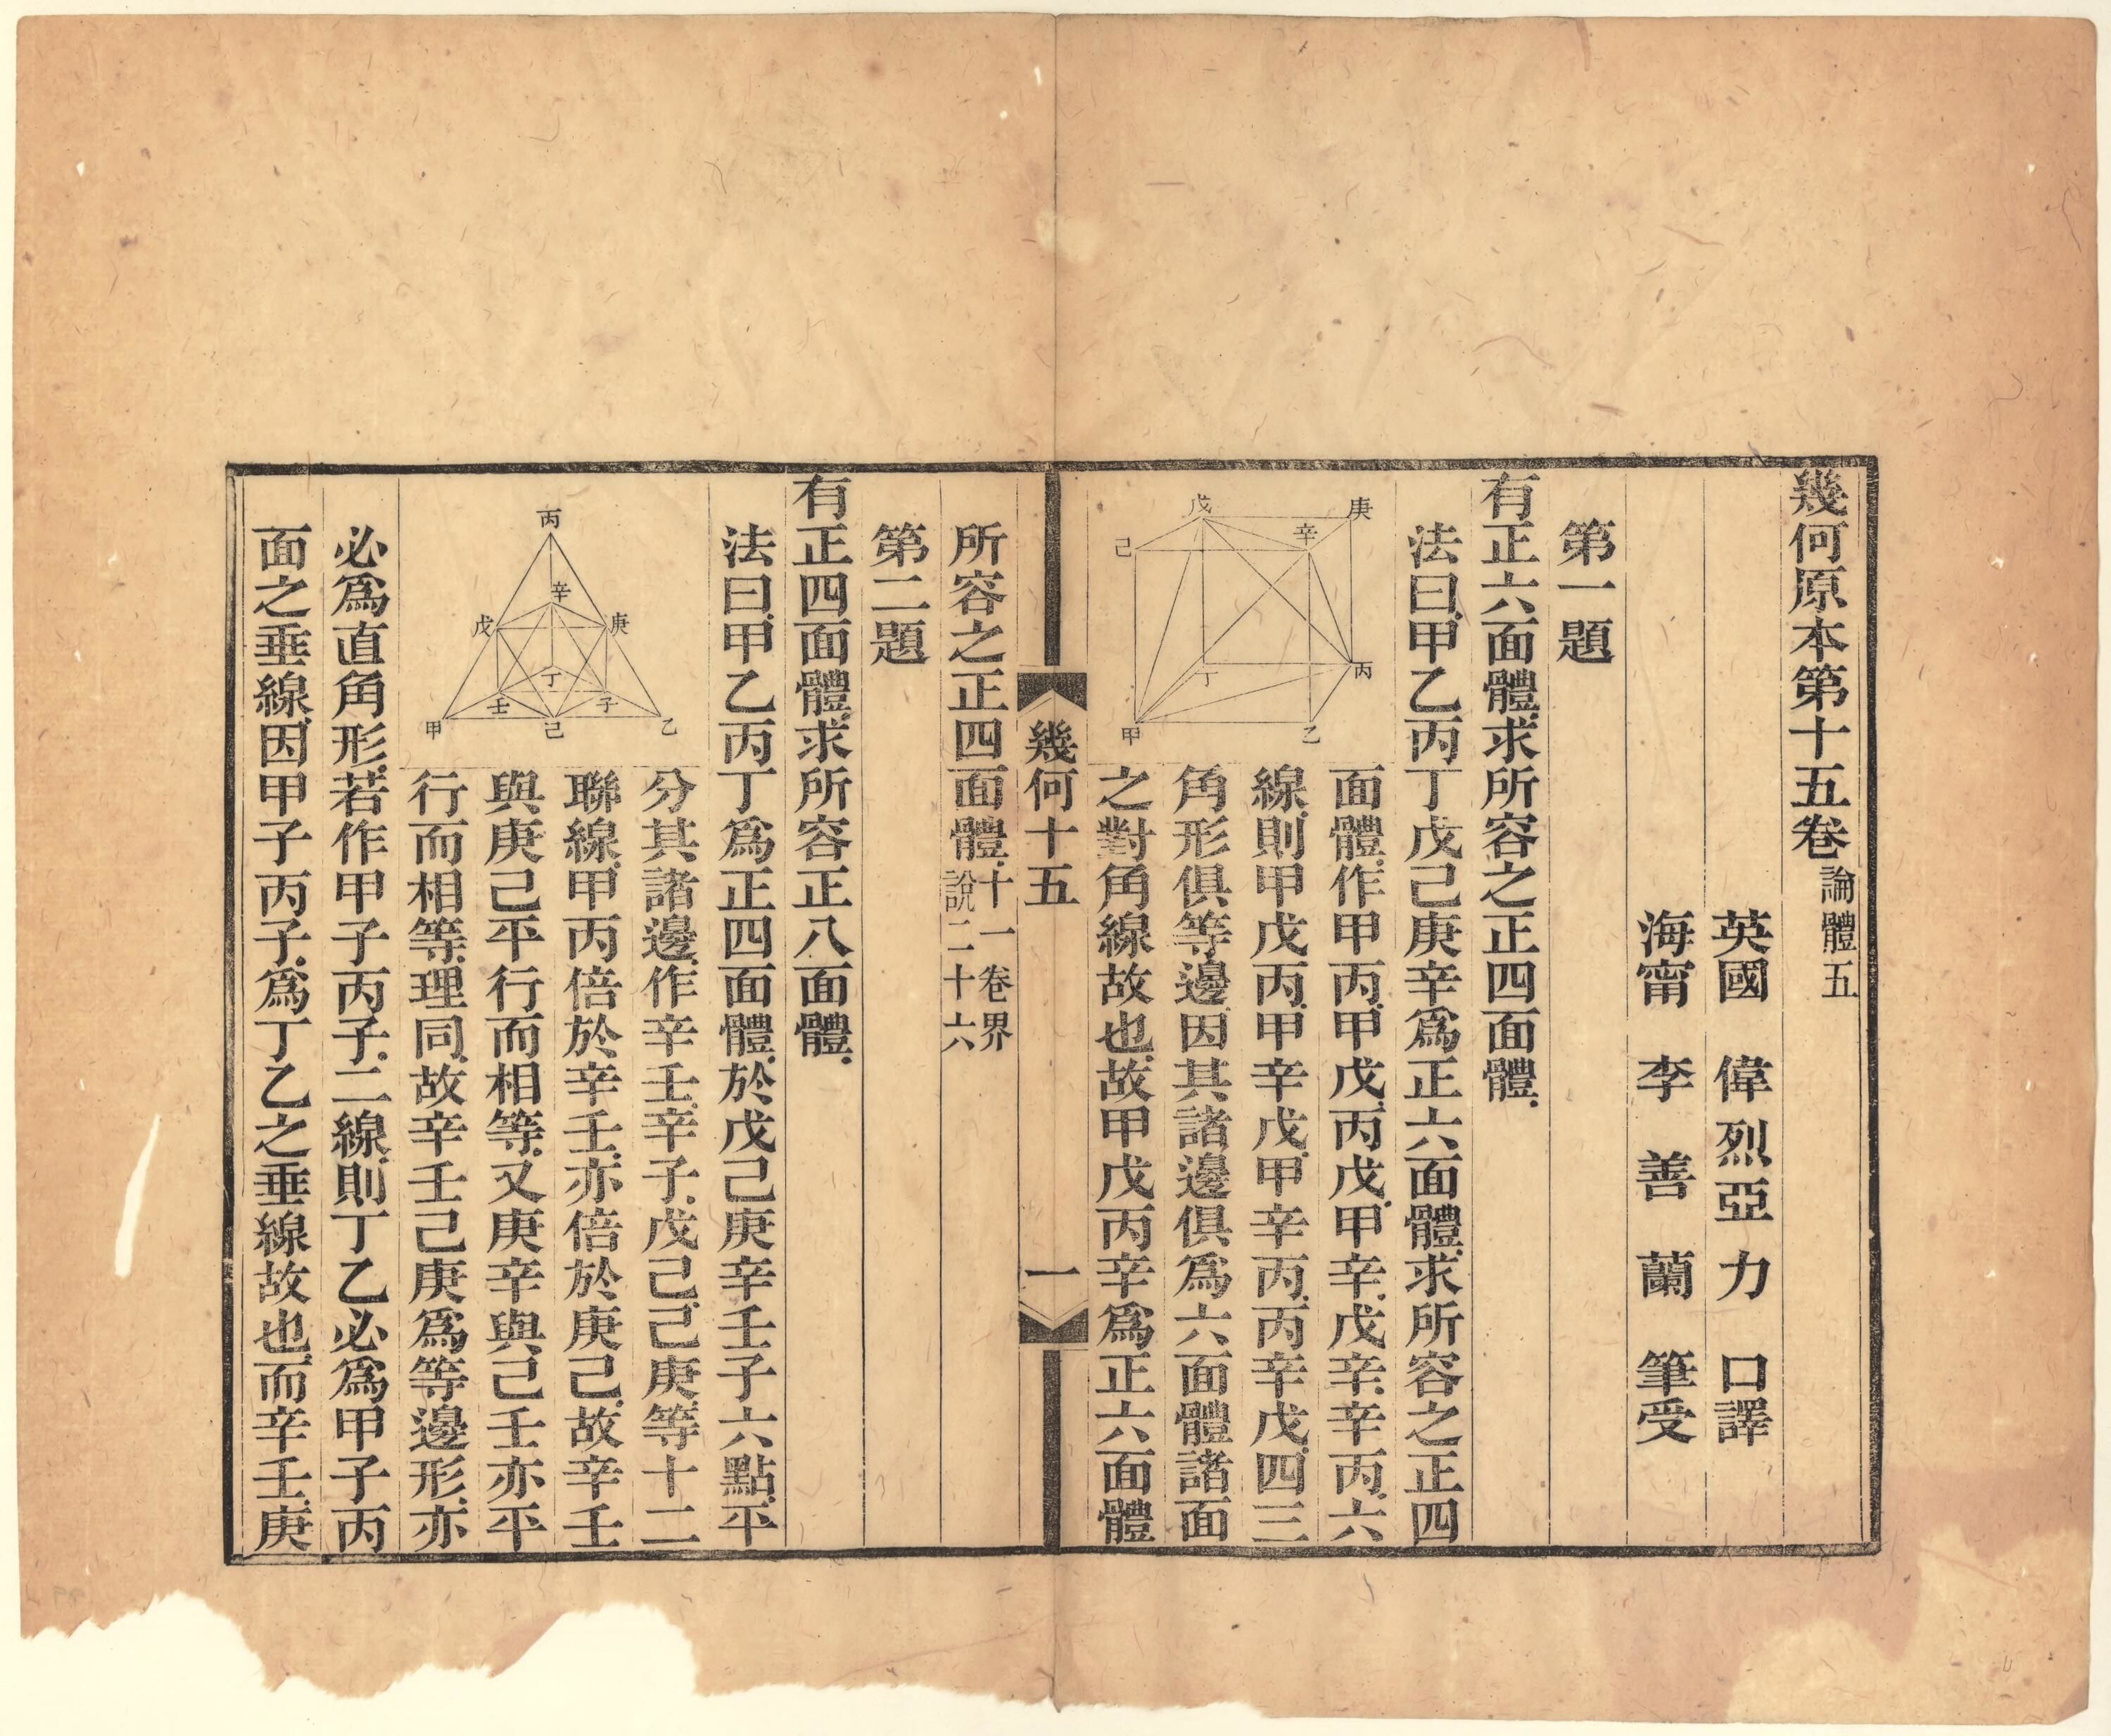 幾何原本第十五卷論體五
英國　偉烈亞力　口譯
海甯　李善蘭　筆受
第一題
有正六面體.求所容之正四面體.
法曰.甲乙丙丁戊己庚辛爲正六面體.求所容之正四
戊
庚
己
辛
丁
丙
甲
乙
面體.作甲丙.甲戊.丙戊.甲辛.戊辛.辛丙.六
線.則甲戊丙.甲辛戊.甲辛丙.丙辛戊.四三
角形俱等邊.因其諸邊俱爲六面體諸面
之對角線故也.故甲戊丙辛爲正六面體
幾何十五
一
所容之正四面體.十一卷界
說二十六
第二題
有正四面體.求所容正八面體.
法曰.甲乙丙丁爲正四面體.於戊己庚辛壬子六點.平
丙
辛
戊
庚
丁
壬
子
甲
己
乙
分其諸邊.作辛壬.辛子.戊己.己庚.等十二
聯線.甲丙倍於辛壬.亦倍於庚己.故辛壬
與庚己平行而相等.又庚辛與己壬亦平
行而相等.理同.故辛壬己庚爲等邊形.亦
必爲直角形.若作甲子丙子.二線.則丁乙必爲甲子丙
面之垂線.因甲子丙子.爲丁乙之垂線故也.而辛壬.庚